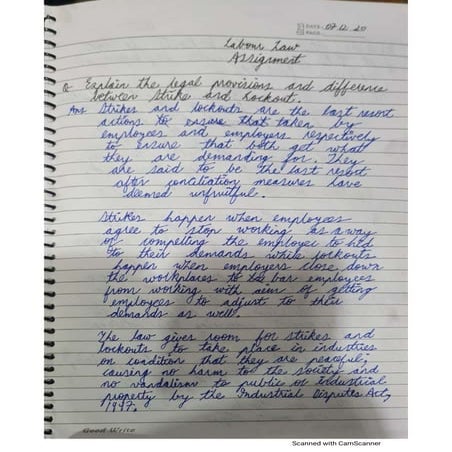 DATE: 07.12.20
PAGE
Labour Law
Assignment
Q Explain the legal provisions and difference
between Strike and Lockout.
Ans Strikes and lockouts are the last resort
actions to ensure that taken by
employees and employers respectively
to ensure that both get what
they are demanding for. They
are said to be the last resort
after conciliation measures have
deemed unfruitful.
Strikes happen when employees
agree to stop working as a way
of compelling the employer to
to their demands while lockouts
happen when employers close down
the workplaces to bar employees
from working with aim of getting
employees to adjust to their
demands as well.
The law gives room for strikes and
lockouts to take place in industries
on condition that they are peaceful,
causing no harm to the society and
no vandalism to public or Industrial
property by the Industrial Disputes Act,
1947.
Good Write
Scanned with CamScanner